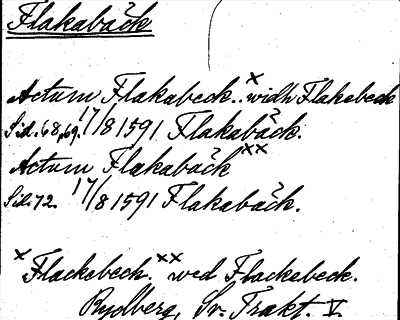 Flakabäck
Actum Flakabeck..ˣ widh Flakabeck
Sid. 68, 69. 17/8 1591 Flakabäck.
Actum Flakabäckˣˣ
Sid. 72. 17/8 1591 Flakabäck.
ˣ Flackebeck. ˣˣ wed Flackebeck.
Rydberg, Sv. Trakt. V.